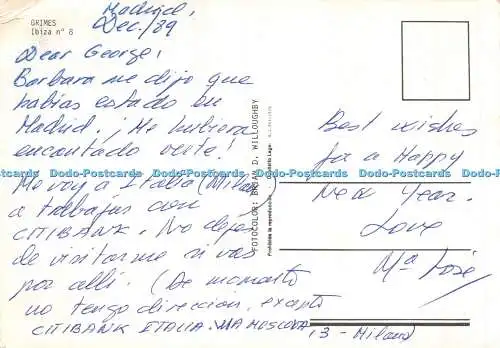 GRIMES
Ibiza nº 8
Madrid,
Dec./89
Dear George:
Barbara me dijo que
habías estado en
Madrid. ¡Me hubiera
encantado verte!
Me voy a Italia (Milan)
a trabajar con
CITIBANK. No dejes
de visitarme si vas
por allí. (De momento
no tengo direccion, excepto
CITIBANK ITALIA. VIA MOSCOVA
, 3 - Milano
FOTOCOLOR: BRIAN D. WILLOUGHBY
Prohibida la reproducción
Depósito Legal
Best wishes
for a Happy
New Year.
Love
Mª José
Dodo-Postcards Dodo-Postcards Dodo-Postcards Dodo-Postcards Dodo-Postcards